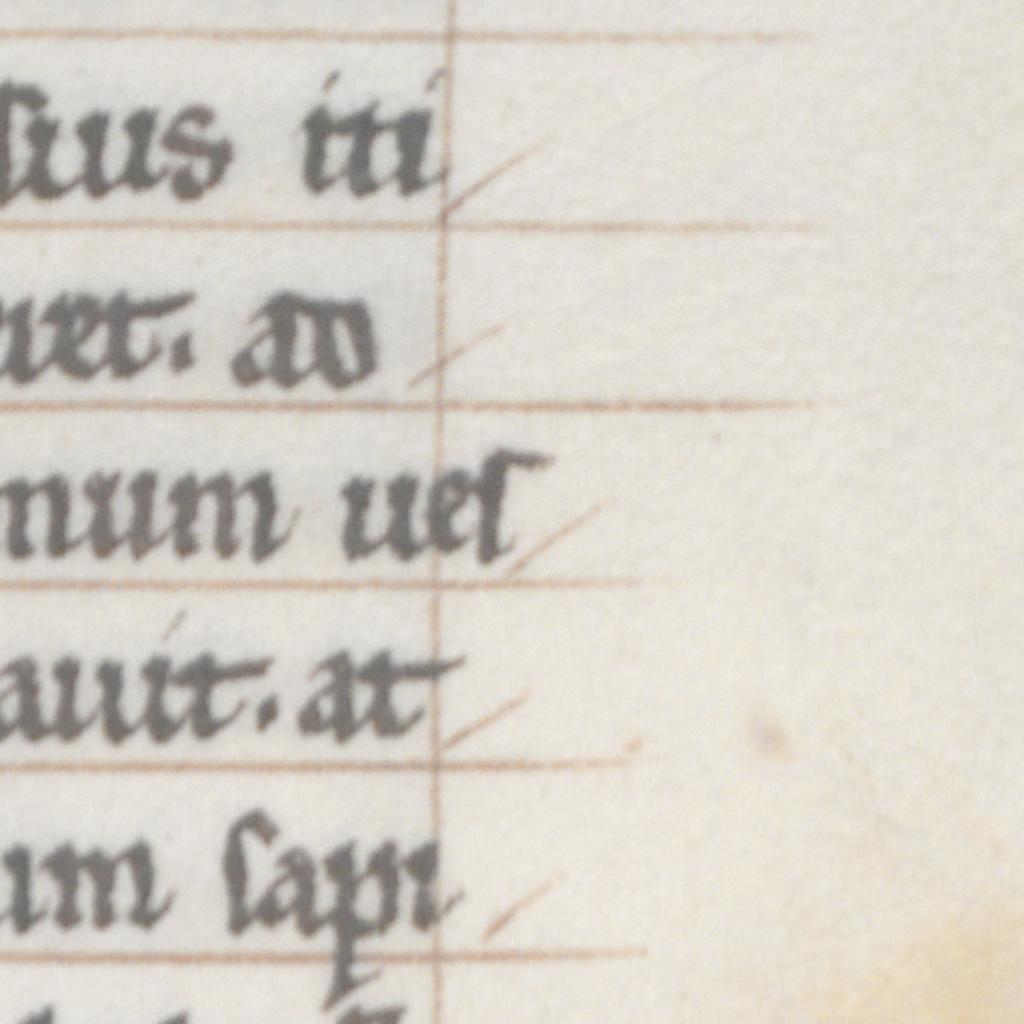 sius iti
uet. ad
num ues
auit. at
um sapi